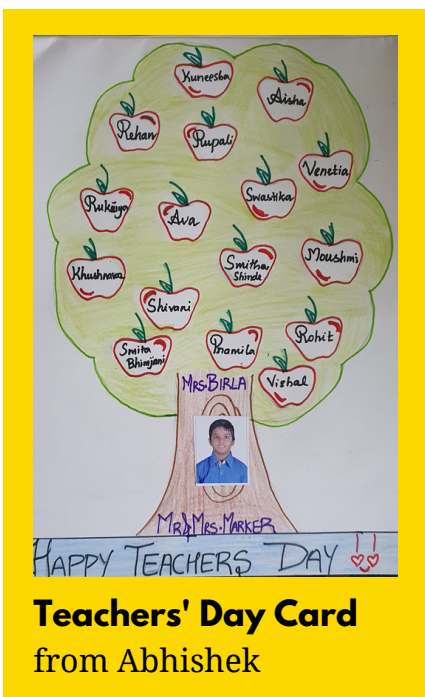 Kuneesha
Aisha
Rehan
Rupali
Venetia
Swastika
Rukaiya
Ava
Smitha
Shinde
Moushmi
Shivani
Smita
Bhimjiani
Pramila
Rohit
Vishal
MRS. BIRLA
MR & MRS. MARKER
HAPPY TEACHERS DAY !!
Teachers' Day Card
from Abhishek